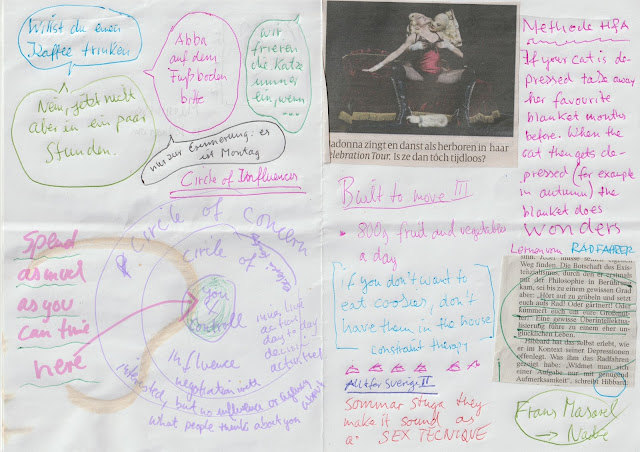 Willst du einen
Kaffee trinken
Nein, jetzt nicht
aber in ein paar
Stunden.
Abba
auf dem
Fußboden
bitte
wir
frieren
die Katze
immer
ein, wenn
...
nur zur Erinnerung: es
ist Montag
Circle of Influences
Circle of Concern
Circle of
you
controll
Influence
negotiation with
interested, but no influence as
what people think about you
Spend
as much
as you
can time
here
adonna zingt en danst als herboren in haar
elebration Tour. Is ze dan tóch tijdloos?
Built to move III
800g fruid and vegetable
a day
if you don't want to
eat cookies, don't
have them in the house
constraint therapy
Allt för Sverige II
Sommar stuga they
make it sound as
a SEX TECNIQUE
Methode HPA
If your cat is de-
pressed take away
her favourite
blanket months
before. When the
cat then gets de-
pressed (for example
in autumn) the
blanket does
wonders
Lernen vom RADFAHRER
Weg finden. Die Botschaft des Exis-
tenzialismus, durch den er erstmals
mit der Philosophie in Berührung
kam, sei bis zu einem gewissen Grad
aber: „Hört auf zu grübeln und setzt
euch aufs Rad! Oder gärtnert! Oder
kümmert euch um eure Großmut-
Eine gewisse
glücklichen Leben.
Hibbard hat das selbst erlebt, wie
er im Kontext seiner Depressionen
offenlegt. Was ihm das Radfahren
gezeigt habe: „Widmet man sich
einer Aufgabe nur mit genügend
Aufmerksamkeit", schreibt Hibbard,
Frans Masereel
→ Nadie